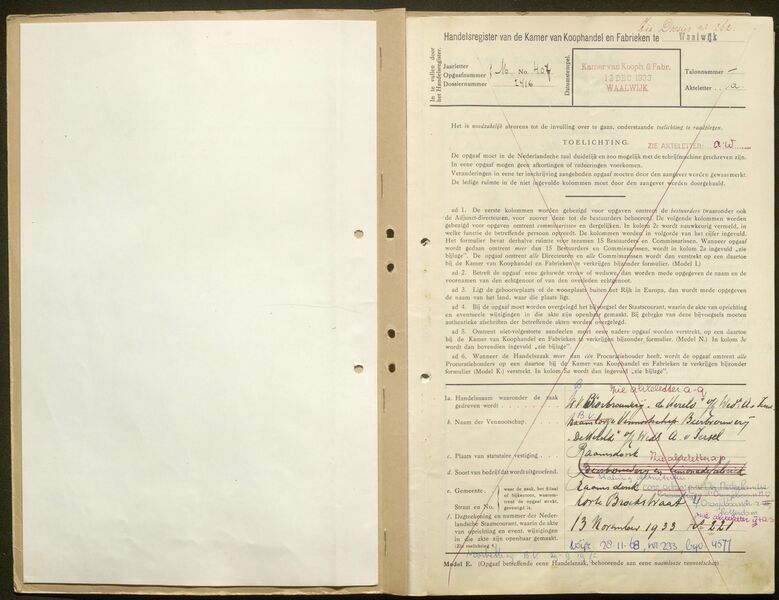 Zie Dossier nr 262.
Handelsregister van de Kamer van Koophandel en Fabrieken te Waalwijk
In te vullen door het Handelsregister.
Jaarletter
Opgaafnummer
Dossiernummer
M No 407
2416
Datumstempel.
Kamer van Kooph. & Fabr.
13 DEC. 1933
WAALWIJK
Talonnummer —
Akteletter a.
Het is noodzakelijk alvorens tot de invulling over te gaan, onderstaande toelichting te raadplegen.
TOELICHTING.
ZIE AKTELETTER: a.w
De opgaaf moet in de Nederlandsche taal duidelijk en zoo mogelijk met de schrijfmachine geschreven zijn.
In eene opgaaf mogen geen afkortingen of radeeringen voorkomen.
Veranderingen in eene ter inschrijving aangeboden opgaaf moeten door den aangever worden gewaarmerkt.
De ledige ruimte in de niet ingevulde kolommen moet door den aangever worden doorgehaald.
ad 1. De eerste kolommen worden gebezigd voor opgaven omtrent de bestuurders (waaronder ook
de Adjunct-directeuren, voor zoover deze tot de bestuurders behooren). De volgende kolommen worden
gebezigd voor opgaven omtrent commissarissen en dergelijken. In kolom 2e wordt nauwkeurig vermeld, in
welke functie de betreffende persoon optreedt. De kolommen worden in volgorde van het cijfer ingevuld.
Het formulier bevat derhalve ruimte voor tezamen 15 Bestuurders en Commissarissen. Wanneer opgaaf
wordt gedaan omtrent meer dan 15 Bestuurders en Commissarissen, wordt in kolom 2a ingevuld „zie
bijlage". De opgaaf omtrent alle Directeuren en alle Commissarissen wordt dan verstrekt op een daartoe
bij de Kamer van Koophandel en Fabrieken te verkrijgen bijzonder formulier. (Model I.)
ad 2. Betreft de opgaaf eene gehuwde vrouw of weduwe, dan worden mede opgegeven de naam en de
voornamen van den echtgenoot of van den overleden echtgenoot.
ad 3. Ligt de geboorteplaats of de woonplaats buiten het Rijk in Europa, dan wordt mede opgegeven
de naam van het land, waar die plaats ligt.
ad 4. Bij de opgaaf moet worden overgelegd het bijvoegsel der Staatscourant, waarin de akte van oprichting
en eventueele wijzigingen in die akte zijn openbaar gemaakt. Bij gebreke van deze bijvoegsels moeten
authentieke afschriften der betreffende akten worden overgelegd.
ad 5. Omtrent niet-volgestorte aandeelen moet eene nadere opgaaf worden verstrekt, op een daartoe
bij de Kamer van Koophandel en Fabrieken te verkrijgen bijzonder formulier. (Model N.) In kolom 3c
wordt dan bovendien ingevuld „zie bijlage".
ad 6. Wanneer de Handelszaak meer dan één Procuratiehouder heeft, wordt de opgaaf omtrent alle
Procuratiehouders op een daartoe bij de Kamer van Koophandel en Fabrieken te verkrijgen bijzonder
formulier (Model K) verstrekt. In kolom 5a wordt dan ingevuld „zie bijlage".
zie akteletter a-q
1a. Handelsnaam waaronder de zaak
gedreven wordt
N.V. Bierbrouwerij „de Wereld" v/h Wede A. v. Iersel
B.V.
b. Naam der Vennootschap.
Naamlooze Vennootschap Bierbrouwerij
„De Wereld" v/h Wede A. v. Iersel
c. Plaats van statutaire vestiging
Raamsdonk
zie akteletter a-p
d. Soort van bedrijf dat wordt uitgeoefend.
Bierbrouwerij en limonadefabriek
e. Gemeente
Straat en No.
waar de zaak, het filiaal
of bijkantoor, waarom-
trent de opgaaf strekt,
gevestigd is.
Raamsdonk
Korte Broekstraat 4
Rotterdam
zie akteletter
f. Dagteekening en nummer der Neder-
landsche Staatscourant, waarin de akte
van oprichting en event. wijzigingen in
die akte zijn openbaar gemaakt.
(Zie toelichting 4.)
13 November 1933 No 221
Wijz. 28-11-68, nr 233, byv 4577
Model E. (Opgaaf betreffende eene Handelszaak, behoorende aan eene naamlooze vennootschap)